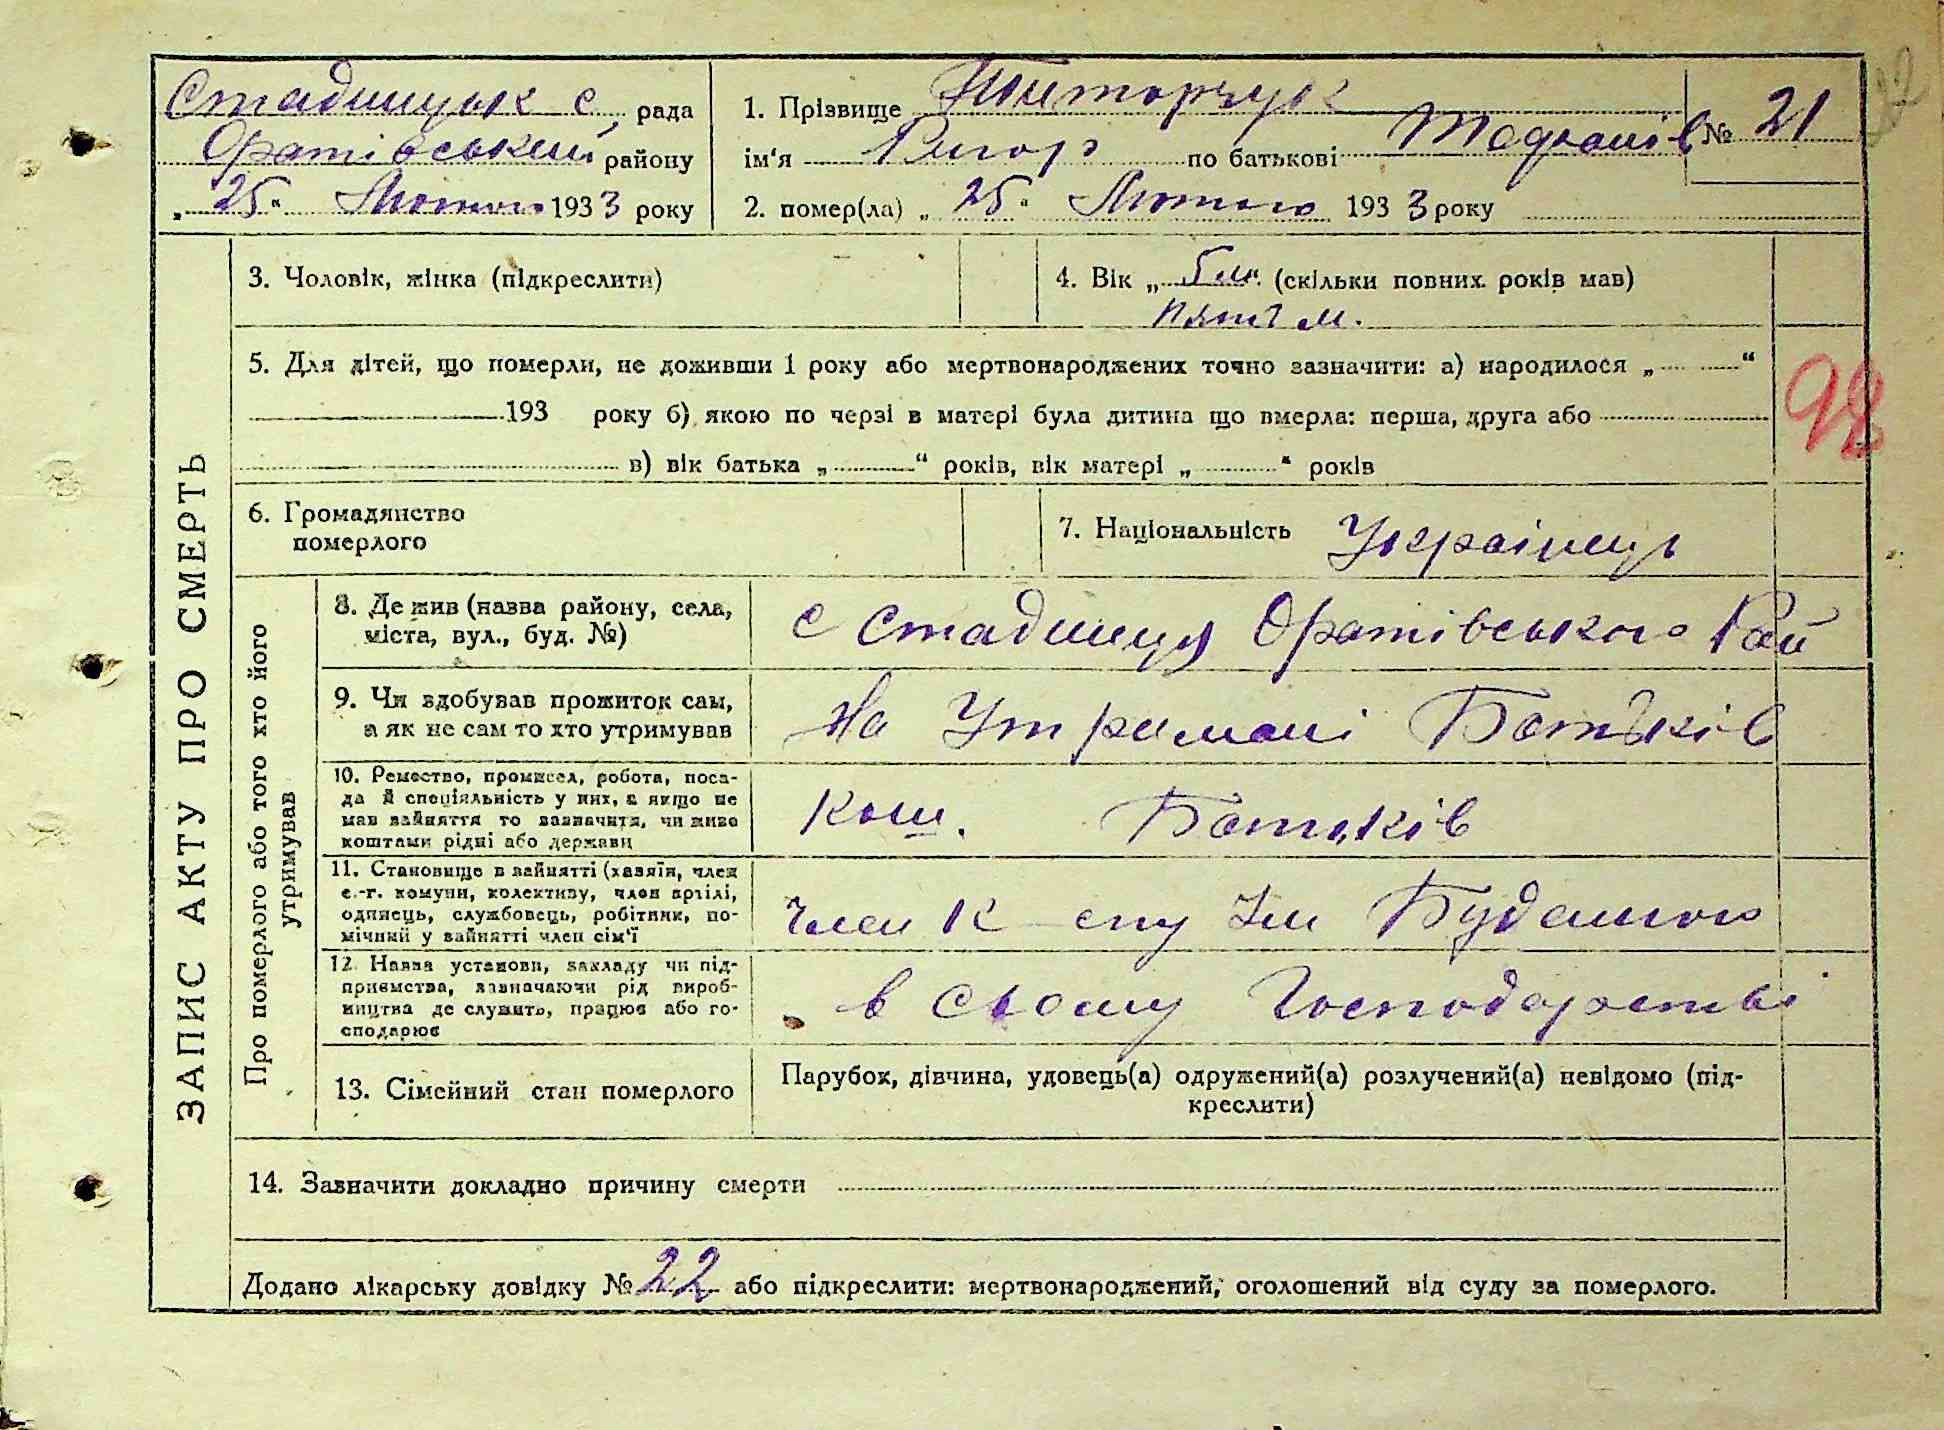 Стадницьк с. рада
Оратівський району
„25" Лютого 1933 року
1. Прізвище
ім'я Ригор по батькові № 21
2. помер(ла) „25" Лютого 1933 року
ЗАПИС АКТУ ПРО СМЕРТЬ
3. Чоловік, жінка (підкреслити)
4. Вік „5 м." (скільки повних років мав)
пять м.
5. Для дітей, що померли, не доживши 1 року або мертвонароджених точно зазначити: а) народилося „ “
193 року б) якою по черзі в матері була дитина що вмерла: перша, друга або
в) вік батька „ “ років, вік матері „ “ років
98
6. Громадянство
померлого
7. Національність Українець
Про померлого або того хто його
утримував
8. Де жив (назва району, села,
міста, вул., буд. №)
с Стадниця Оратівського Рай
9. Чи здобував прожиток сам,
а як не сам то хто утримував
на Утримані Батьків
10. Ремество, промисел, робота, поса-
да й спеціяльність у них, а якщо не
мав зайняття то зазначити, чи живе
коштами рідні або держави
Кош. Батьків
11. Становище в зайнятті (хазяїн, член
с.-г. комуни, колективу, член артілі,
одинець, службовець, робітник, по-
мічний у зайнятті член сім'ї
член К-спу Ім Будьоного
12. Назва установи, закладу чи під-
приємства, зазначаючи рід вироб-
ництва де служить, працює або го-
сподарює
в свому Господарстві
13. Сімейний стан померлого
Парубок, дівчина, удовець(а) одружений(а) розлучений(а) невідомо (під-
креслити)
14. Зазначити докладно причину смерти
Додано лікарську довідку № 22 або підкреслити: мертвонароджений, оголошений від суду за померлого.